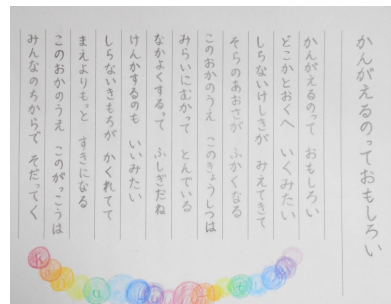 かんがえるのっておもしろい
かんがえるのって　おもしろい
どこかとおくへ　いくみたい
しらないけしきが　みえてきて
そらのあおさが　ふかくなる
このおかのうえ　このきょうしつは
みらいにむかって　とんでいる
なかよくするって　ふしぎだね
けんかするのも　いいみたい
しらないきもちが　かくれてて
まえよりもっと　すきになる
このおかのうえ　このがっこうは
みんなのちからで　そだってく